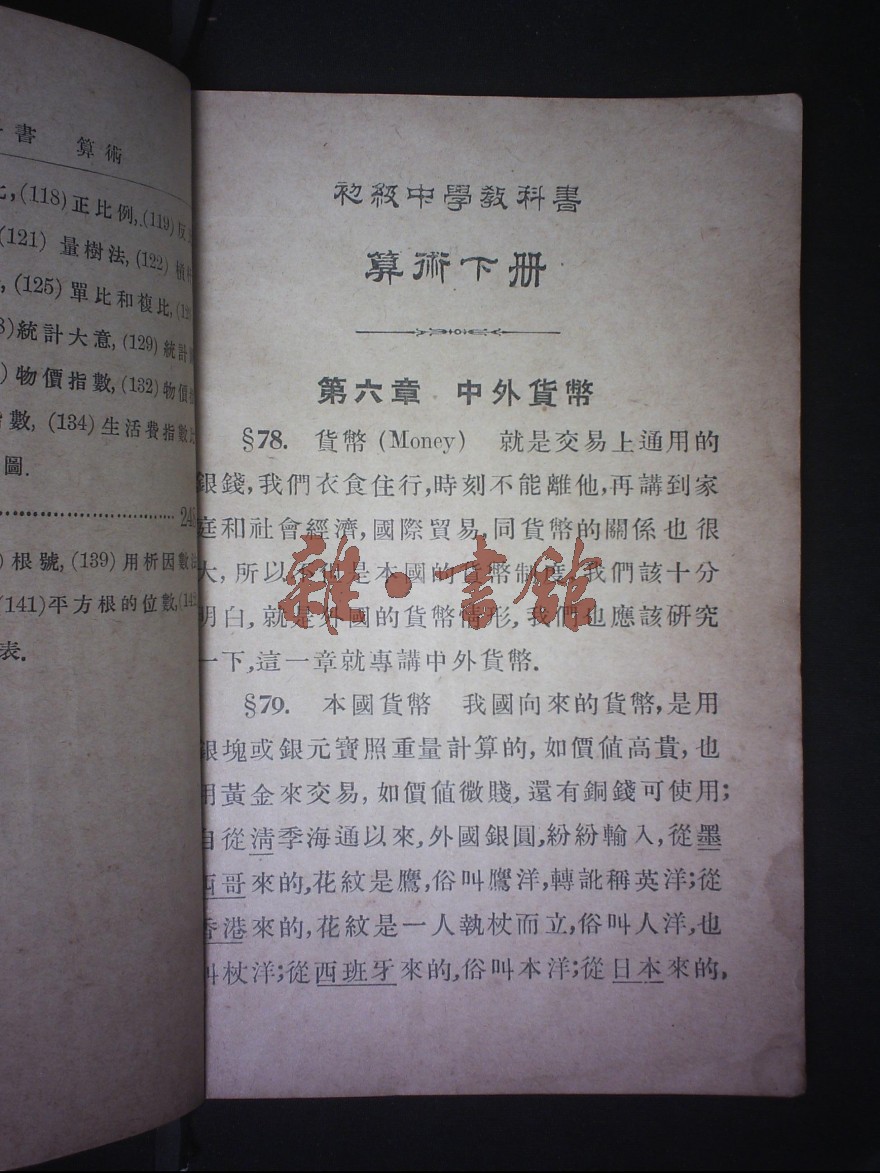 書 算術
(118)正比例,(119)反
(121) 量樹法,(122)
(125) 單比和複比,
統計大意,(129)統計
物價指數,(132)物價
數, (134)生活費指數
圖.
24
根號,(139)用析因數
(141)平方根的位數,
表.
初級中學教科書
算術下册
第六章 中外貨幣
§78. 貨幣(Money) 就是交易上通用的
銀錢,我們衣食住行,時刻不能離他,再講到家
庭和社會經濟,國際貿易,同貨幣的關係也很
大,所以不但是本國的貨幣制度,我們該十分
明白,就是外國的貨幣情形,我們也應該研究
一下,這一章就專講中外貨幣.
§79. 本國貨幣 我國向來的貨幣,是用
銀塊或銀元寶照重量計算的,如價值高貴,也
用黃金來交易,如價值微賤,還有銅錢可使用;
自從清季海通以來,外國銀圓,紛紛輸入,從墨
西哥來的,花紋是鷹,俗叫鷹洋,轉訛稱英洋;從
香港來的,花紋是一人執杖而立,俗叫人洋,也
叫杖洋;從西班牙來的,俗叫本洋;從日本來的,
雜·書館